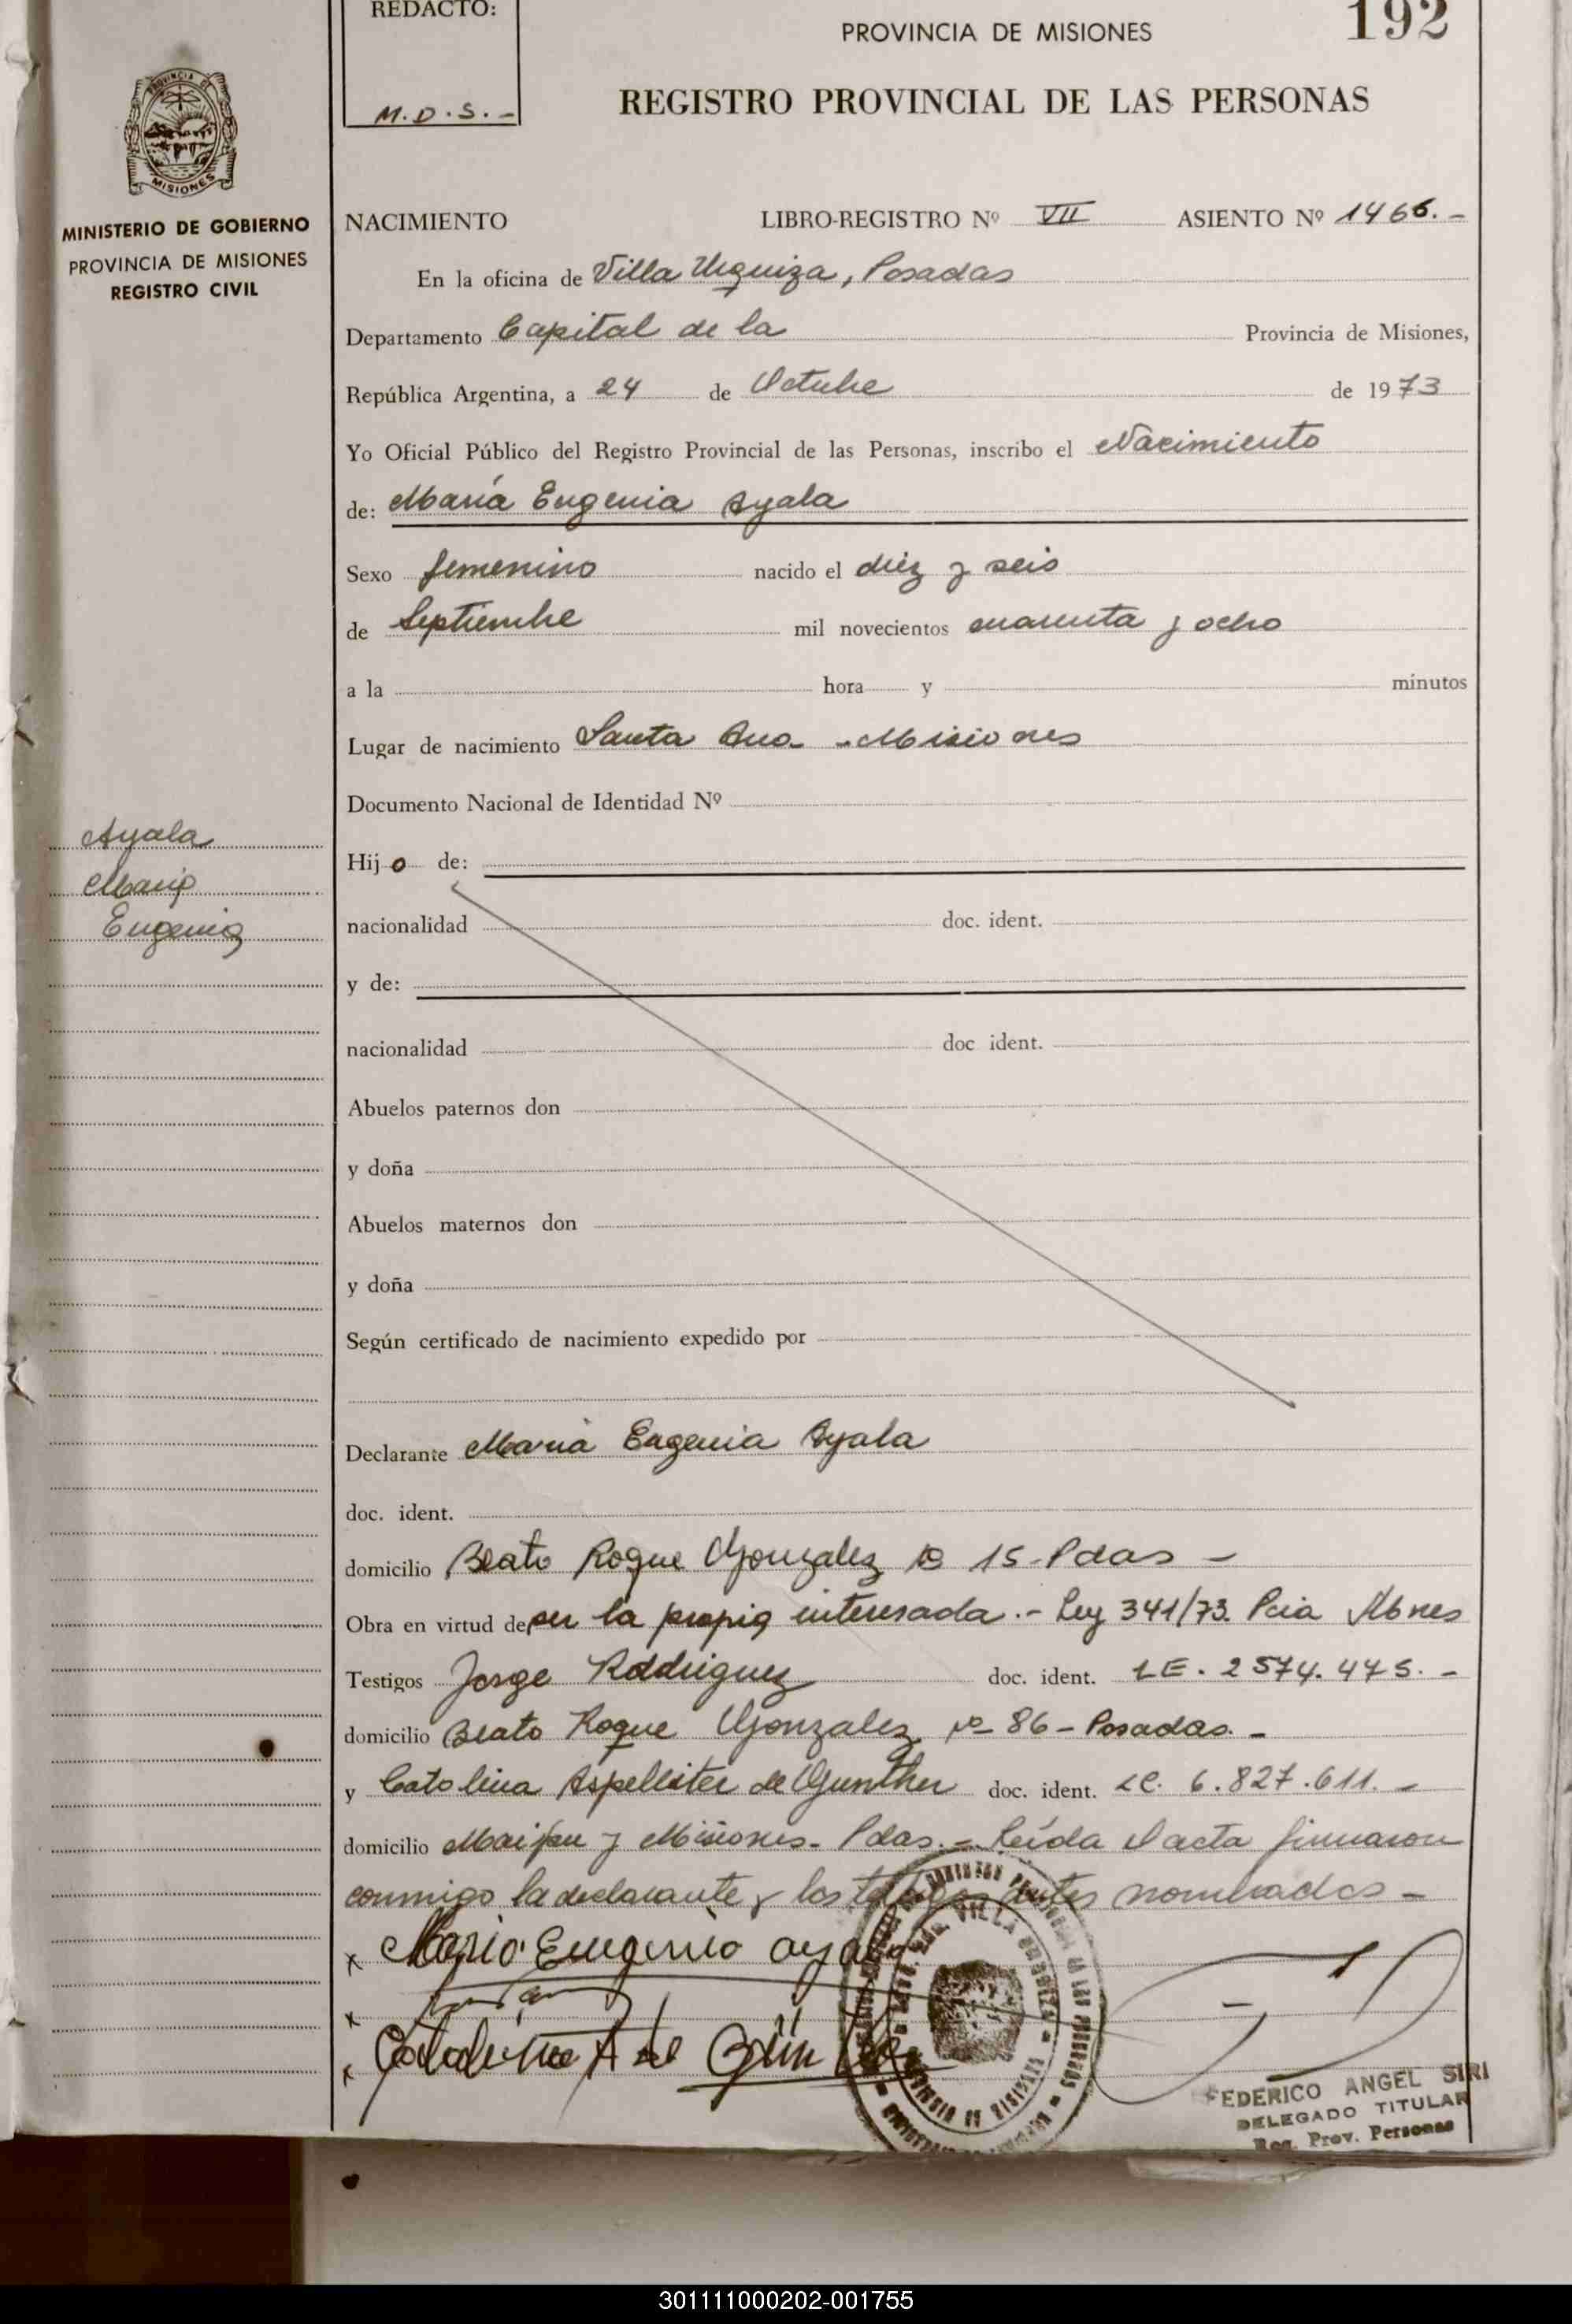 REDACTO:
M.D.S.-
PROVINCIA DE MISIONES
192
REGISTRO PROVINCIAL DE LAS PERSONAS
PROVINCIA DE
MISIONES
MINISTERIO DE GOBIERNO
PROVINCIA DE MISIONES
REGISTRO CIVIL
NACIMIENTO LIBRO-REGISTRO Nº VII ASIENTO Nº 1466.-
En la oficina de Villa Urquiza, Posadas
Departamento Capital de la Provincia de Misiones,
República Argentina, a 24 de Octubre de 1973
Yo Oficial Público del Registro Provincial de las Personas, inscribo el Nacimiento
de: María Eugenia Ayala
Sexo femenino nacido el diez y seis
de Septiembre mil novecientos cuarenta y ocho
a la hora y minutos
Lugar de nacimiento Santa Ana - Misiones
Documento Nacional de Identidad Nº
Ayala
María
Eugenia
Hijo de:
nacionalidad doc. ident.
y de:
nacionalidad doc ident.
Abuelos paternos don
y doña
Abuelos maternos don
y doña
Según certificado de nacimiento expedido por
Declarante María Eugenia Ayala
doc. ident.
domicilio Beato Roque Gonzalez Nº 15-Pdas -
Obra en virtud de ser la propia interesada.- Ley 341/73. Pcia Mnes
Testigos Jorge Rodriguez doc. ident. LE. 2574.475.-
domicilio Beato Roque Gonzalez Nº 86-Posadas.-
y Catalina Aspelliter de Gunther doc. ident. LC. 6.827.611.-
domicilio Maipu y Misiones- Pdas.- Leída el acta firmaron
conmigo la declarante y los testigos antes nombrados -
x Maria Eugenia ayala
x
x Catalina A de Günther
VILLA URQUIZA
FEDERICO ANGEL SIRI
DELEGADO TITULAR
Reg. Prov. Personas
301111000202-001755